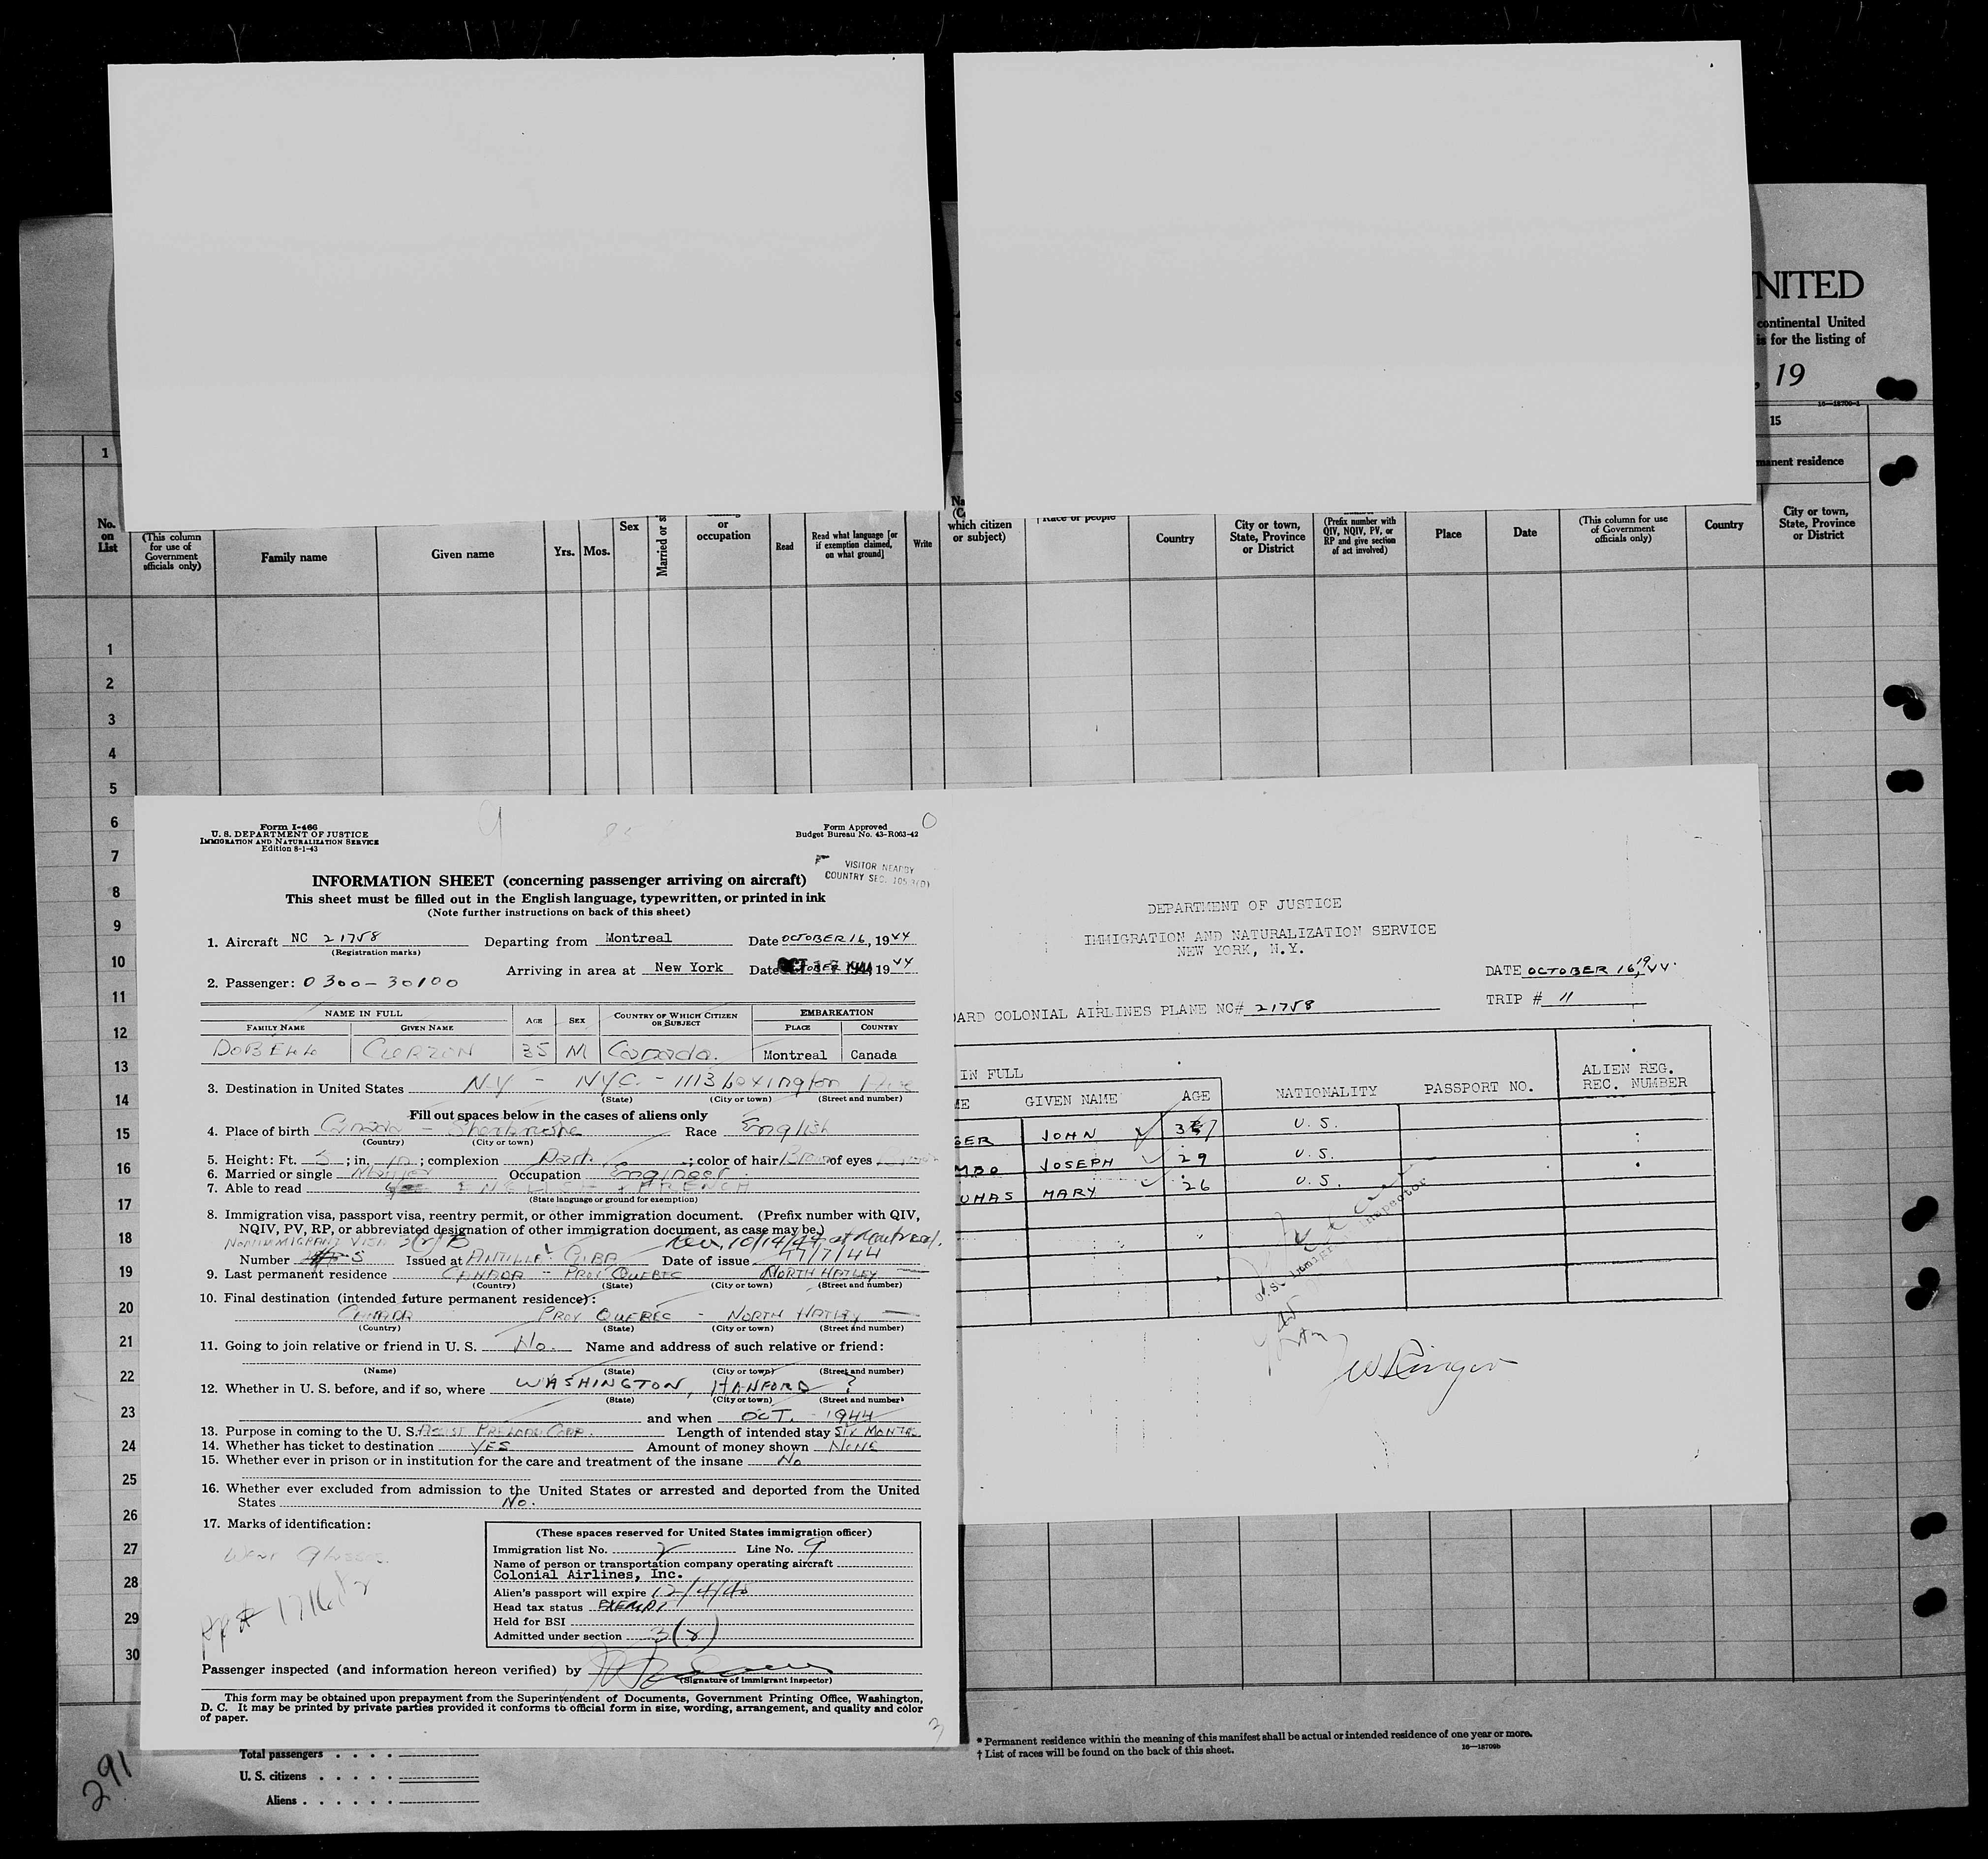 NITED
continental United
is for the listing of
, 19
16—18700-1
15
1
manent residence
No.
on
List
(This column
for use of
Government
officials only)
Family name
Given name
Yrs.
Mos.
Sex
Married or s
or
occupation
Read
Read what language [or
if exemption claimed,
on what ground]
Write
which citizen
or subject)
Race or people
Country
City or town,
State, Province
or District
(Prefix number with
QIV, NQIV, PV, or
RP and give section
of act involved)
Place
Date
(This column for use
of Government
officials only)
Country
City or town,
State, Province
or District
1
2
3
4
5
6
7
8
9
10
11
12
13
14
15
16
17
18
19
20
21
22
23
24
25
26
27
28
29
30
Form I-466
U. S. DEPARTMENT OF JUSTICE
IMMIGRATION AND NATURALIZATION SERVICE
Edition 8-1-43
9
Form Approved
Budget Bureau No. 43-R063-42
VISITOR NEARBY
COUNTRY SEC.
INFORMATION SHEET (concerning passenger arriving on aircraft)
This sheet must be filled out in the English language, typewritten, or printed in ink
(Note further instructions on back of this sheet)
1. Aircraft NC 21758 Departing from Montreal Date OCTOBER 16, 1944
(Registration marks)
Arriving in area at New York Date 1944
2. Passenger: 0300-30100
NAME IN FULL
AGE
SEX
COUNTRY OF WHICH CITIZEN
OR SUBJECT
EMBARKATION
FAMILY NAME
GIVEN NAME
PLACE
COUNTRY
DOBELL CURZON 35 M Canada. Montreal Canada
3. Destination in United States N.Y - NYC. - 1113 Lexington Ave
(State) (City or town) (Street and number)
Fill out spaces below in the cases of aliens only
4. Place of birth Canada - Sherbrooke Race English
(Country) (City or town)
5. Height: Ft. 5; in. 10; complexion Dark; color of hair Brown of eyes Brown
6. Married or single Married Occupation Engineer
7. Able to read ENGLISH - FRENCH
(State language or ground for exemption)
8. Immigration visa, passport visa, reentry permit, or other immigration document. (Prefix number with QIV,
NQIV, PV, RP, or abbreviated designation of other immigration document, as case may be.)
NONIMMIGRANT VISA 3(2)B Rev. 10/14/44 at Montreal.
Number 5 Issued at ANTILLA CUBA Date of issue 7/7/44
9. Last permanent residence CANADA - PROV QUEBEC NORTH HATLEY
(Country) (State) (City or town) (Street and number)
10. Final destination (intended future permanent residence):
CANADA PROV QUEBEC - NORTH HATLEY
(Country) (State) (City or town) (Street and number)
11. Going to join relative or friend in U. S. No. Name and address of such relative or friend:
(Name) (State) (City or town) (Street and number)
12. Whether in U. S. before, and if so, where WASHINGTON, HANFORD ?
(State) (City or town) (Street and number)
and when OCT. - 1944
13. Purpose in coming to the U. S. ASSIST PRELOAD CORP. Length of intended stay SIX MONTHS
14. Whether has ticket to destination YES Amount of money shown NONE
15. Whether ever in prison or in institution for the care and treatment of the insane No
16. Whether ever excluded from admission to the United States or arrested and deported from the United
States No.
17. Marks of identification:
Wear Glasses.
(These spaces reserved for United States immigration officer)
Immigration list No. 2 Line No. 9
Name of person or transportation company operating aircraft
Colonial Airlines, Inc.
Alien's passport will expire 12/4/48
Head tax status EXEMPT
Held for BSI
Admitted under section 3(2)
Passenger inspected (and information hereon verified) by
(Signature of immigrant inspector)
This form may be obtained upon prepayment from the Superintendent of Documents, Government Printing Office, Washington,
D. C. It may be printed by private parties provided it conforms to official form in size, wording, arrangement, and quality and color
of paper.
3
DEPARTMENT OF JUSTICE
IMMIGRATION AND NATURALIZATION SERVICE
NEW YORK, N.Y.
DATE OCTOBER 16, 1944.
TRIP # 11
ARD COLONIAL AIRLINES PLANE NC# 21758
IN FULL
ME
GIVEN NAME
AGE
NATIONALITY
PASSPORT NO.
ALIEN REG.
REC. NUMBER
GER JOHN 37 U.S.
MBO JOSEPH 29 U.S.
OMAS MARY 26 U.S.
U.S. Immigrant Inspector
291
Total passengers . . . .
U. S. citizens . . . . .
Aliens . . . . . .
* Permanent residence within the meaning of this manifest shall be actual or intended residence of one year or more.
† List of races will be found on the back of this sheet.
16—18700b